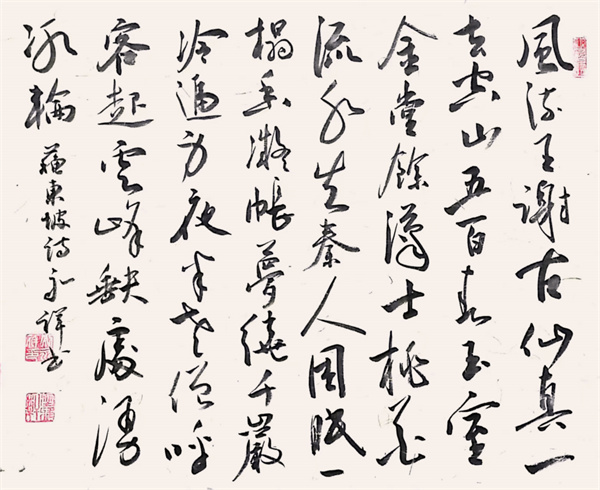 風流王謝古仙真一
去空山五百春玉室
金堂餘漢士桃花
流水失秦人困眠一
榻香凝帳夢繞千巖
冷逼身夜半老僧呼
客起雲峰缺處湧
冰輪 蘇東坡詩 書